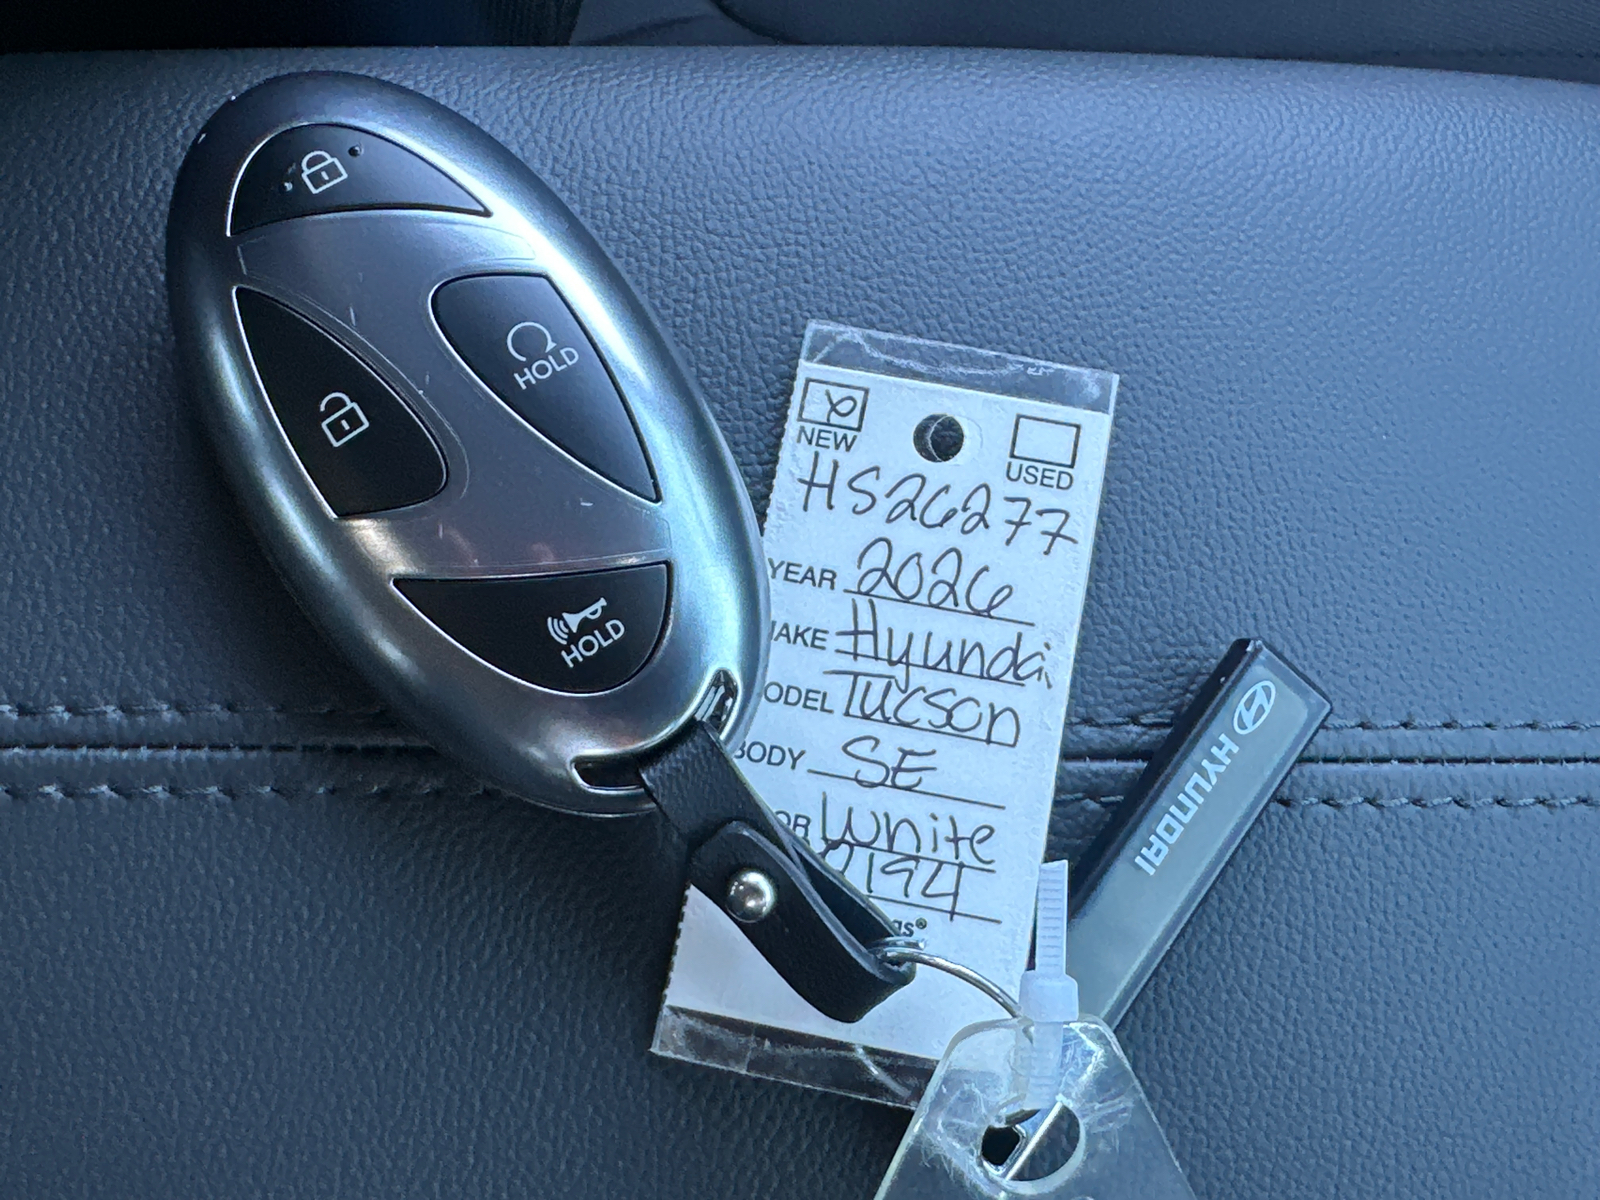 HOLD
HOLD
NEW
USED
HS26277
YEAR 2026
MAKE Hyundai
MODEL Tucson
BODY SE
OR White
HYUNDAI